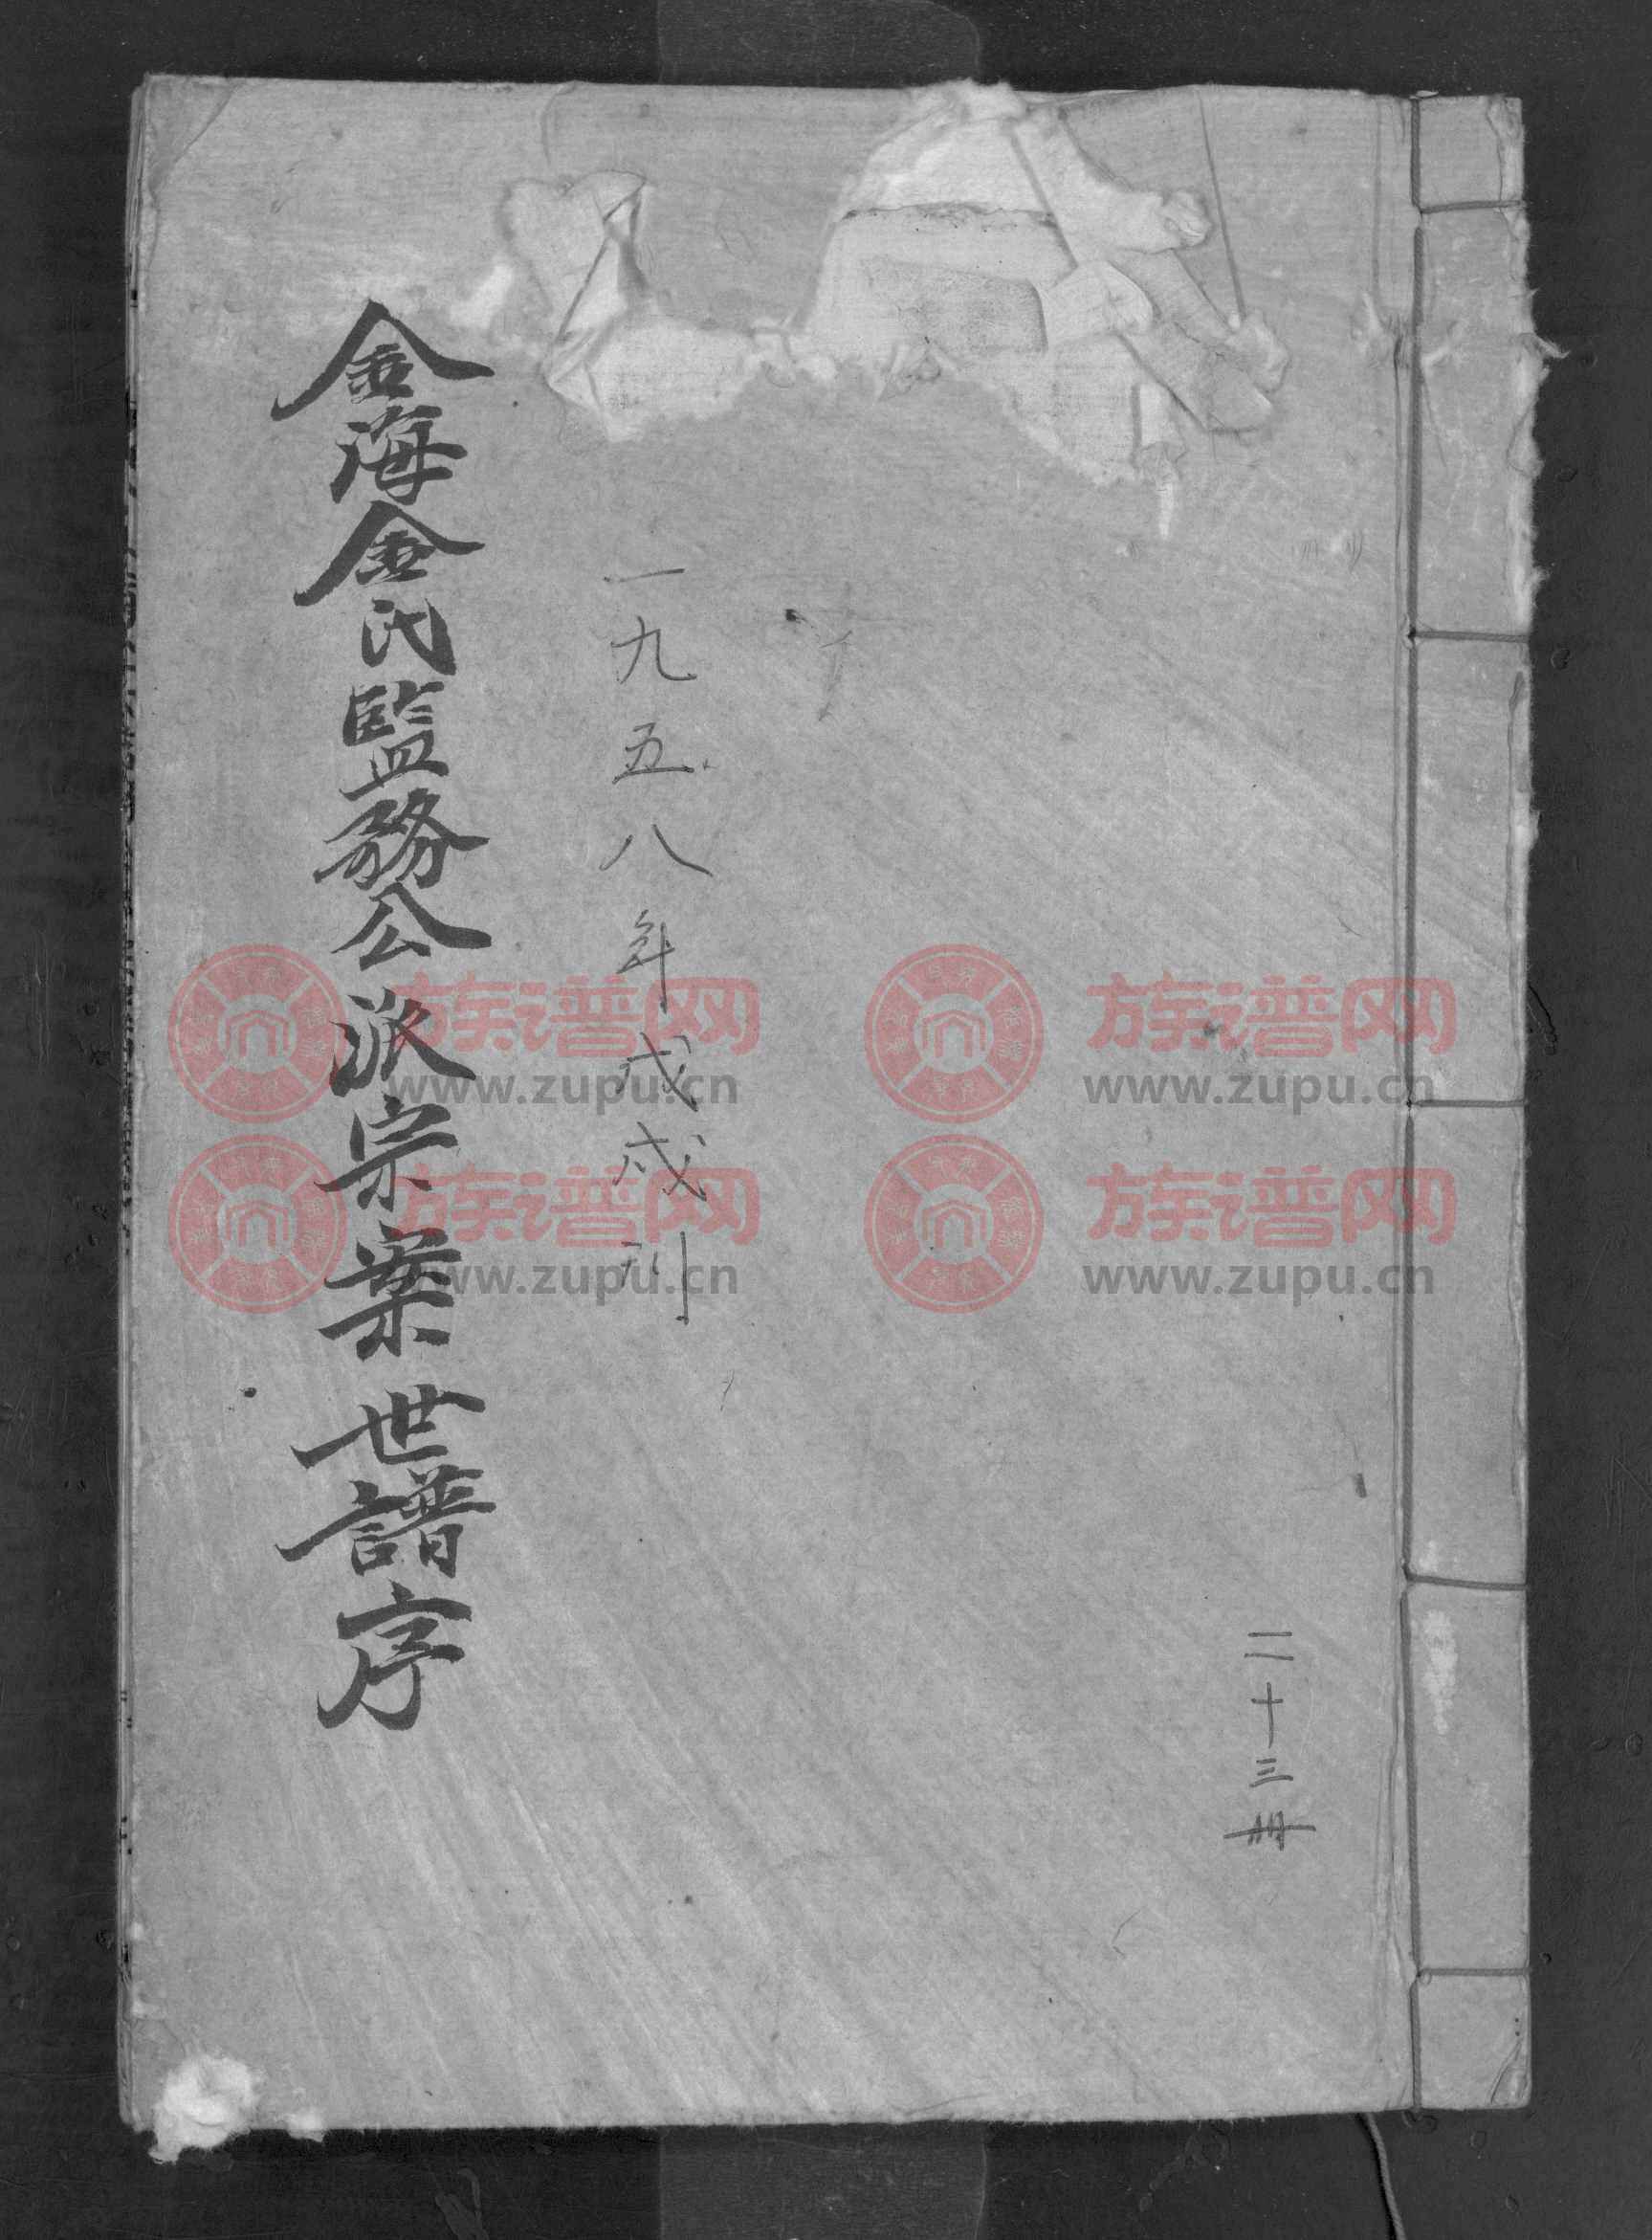 二十三冊
一九五八年戊戌刊
金海金氏監務公派宗案世譜序
族谱网
www.zupu.cn
族谱网
www.zupu.cn
族谱网
www.zupu.cn
族谱网
www.zupu.cn